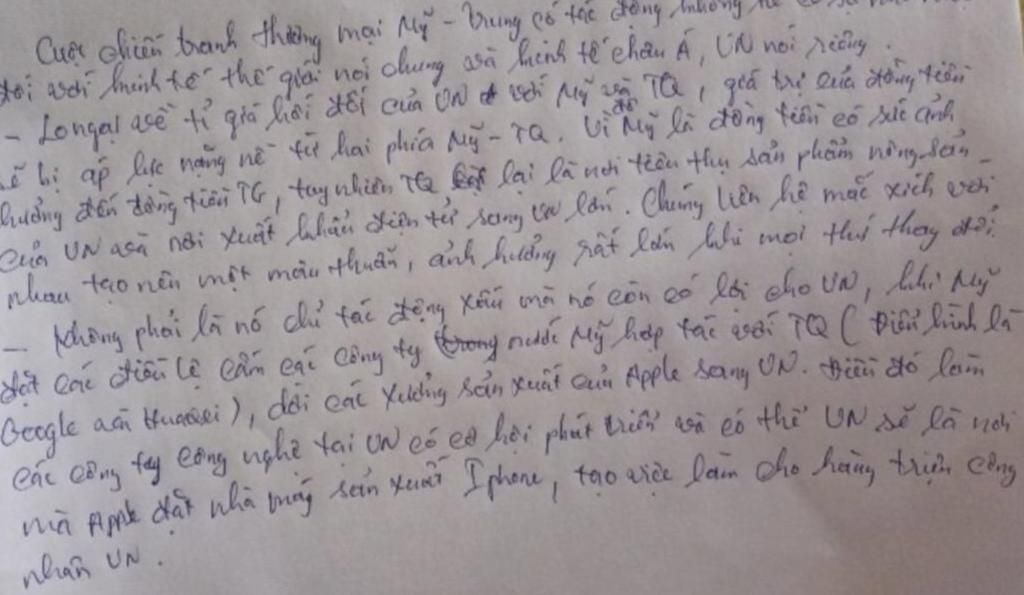 Cuộc chiến tranh thương mại Mỹ - Trung có tác động không
đối với kinh tế thế giới nói chung và kinh tế châu Á, VN nói riêng.
- về tỉ giá hối đối của VN với Mỹ và TQ, giá trị của đồng tiền
sẽ bị áp lực nặng nề từ hai phía Mỹ - TQ. Vì đô Mỹ là đồng tiền có sức ảnh
hưởng đến đồng tiền TG, tuy nhiên TQ lại là nơi tiêu thụ sản phẩm nông sản
của VN và nơi xuất khẩu điện tử sang VN lớn. Chúng liên hệ mắc xích với
nhau tạo nên một mâu thuẫn, ảnh hưởng rất lớn khi mọi thứ thay đổi.
- Không phải là nó chỉ tác động xấu mà nó còn có lợi cho VN, khi Mỹ
đặt các điều lệ cấm các công ty trong nước Mỹ hợp tác với TQ (Điển hình là
Google và Huawei), dời các xưởng sản xuất của Apple sang VN. Điều đó làm
các công ty công nghệ tại VN có cơ hội phát triển và có thể VN sẽ là nơi
mà Apple đặt nhà máy sản xuất Iphone, tạo việc làm cho hàng triệu công
nhân VN.